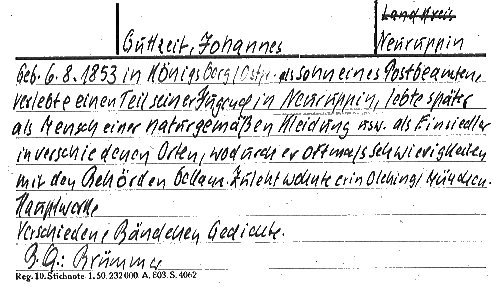 Land Kreis
Guttzeit, Johannes
Neuruppin
Geb. 6.8.1853 in Königsberg/Ostpr. als Sohn eines Postbeamten,
verlebte einen Teil seiner Jugend in Neuruppin, lebte später
als Mensch einer naturgemäßen Kleidung usw. als Einsiedler
in verschiedenen Orten, wodurch er oftmals Schwierigkeiten
mit den Behörden bekam. Zuletzt wohnte er in Olching/München.
Hauptwerke
Verschiedene Bändchen Gedichte.
B.Q.: Brümmer
Reg. 10. Stichnote 1. 50. 232 000. A. E03. S. 4062